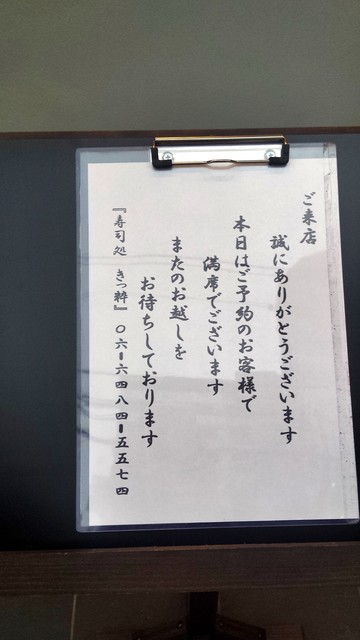 ご来店
誠にありがとうございます
本日はご予約のお客様で
満席でございます
またのお越しを
お待ちしております
『寿司処 きっ粋』 〇六ー六四八四ー五五七四